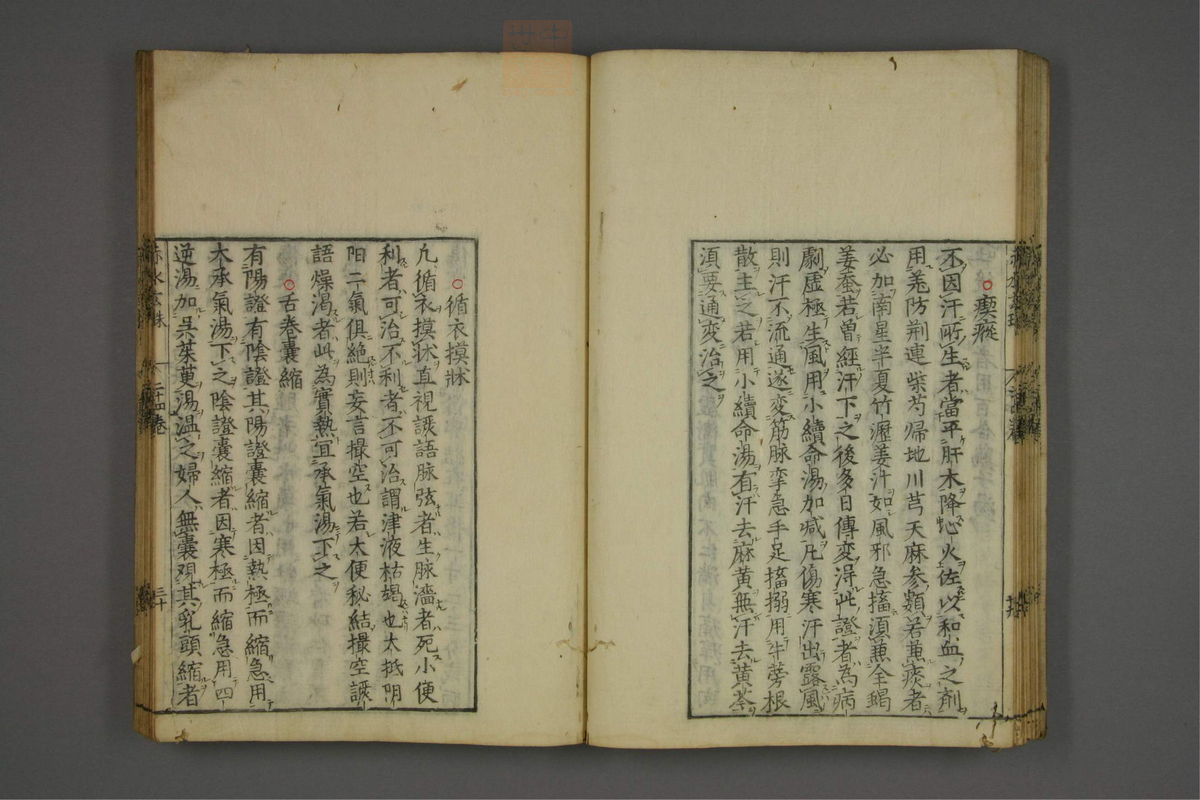 瘈瘲
不因汗所生者當平肝木降心火佐以和血之剤
用羌防荆連柴芍帰地川芎天麻参類若兼痰者
必加南星半夏竹瀝姜汁如風邪急搐須兼全蝎
姜蚕若曽經汗下之後多日傳変淂此證者為病
劇虚極生風用小續命湯加减凢傷寒汗出露風
則汗不流通遂変筋脉挛急手足搐搦用牛蒡根
散主之若用小續命湯有汗去麻黄無汗去黄芩
湏要通変治之
循衣摸牀
凢循衣摸牀直視譫語脉弦者生脉濇者死小便
利者可治不利者不可治謂津液枯竭也太抵阴
阳二氣俱絶則妄言撮空也若太便秘結撮空譫
語燥渇者此為實熱宜承氣湯下之
舌巻囊縮
有陽證有陰證其陽證囊縮者因熱極而縮急用
大承氣湯下之陰證囊縮者因寒極而縮急用四
逆湯加吳茱萸湯温之婦人無囊观其乳頭縮者
赤水玄珠
二十四卷
三十